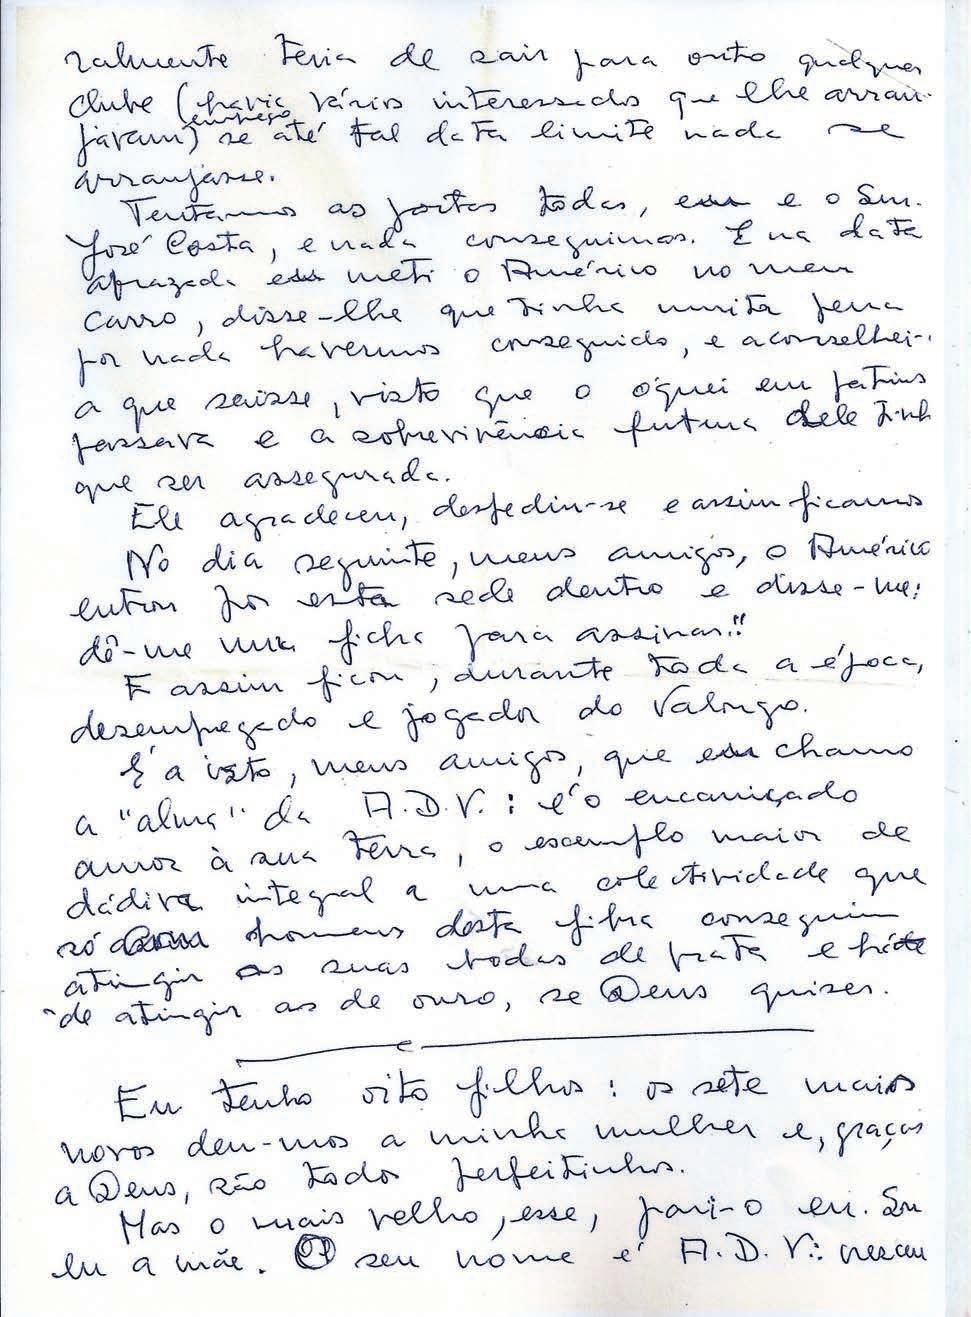 ralmente teria de sair para outro qualquer
clube (havia vários interessados que lhe arran-
emprego
javam) se até tal data limite nada se
arranjasse.
Tentamos as portas todas, eu e o Snr.
José Costa, e nada conseguimos. E na data
aprazada eu meti o Américo no meu
carro, disse-lhe que tinha muita pena
por nada havermos conseguido, e aconselhei-
a que saisse, visto que o óquei em patins
passava e a sobrevivência futura dele tinh
que ser assegurada.
Ele agradeceu, despediu-se e assim ficamos
No dia seguinte, meus amigos, o Américo
entrou por esta sede dentro e disse-me:
dê-me uma ficha para assinar!!
E assim ficou, durante toda a época,
desempregado e jogador do Valongo.
É a isto, meus amigos, que eu chamo
a "alma" da A.D.V.: é o encarniçado
amor à sua terra, o exemplo maior de
dádiva integral a uma colectividade que
só homens desta fibra conseguiu
atingir as suas bodas de prata e há
de atingir as de ouro, se Deus quiser.
Eu tenho oito filhos: os sete mais
novos deu-mos a minha mulher e, graças
a Deus, são todos perfeitinhos.
Mas o mais velho, esse, pari-o eu. Sou
eu a mãe. O seu nome é A.D.V.: nasceu